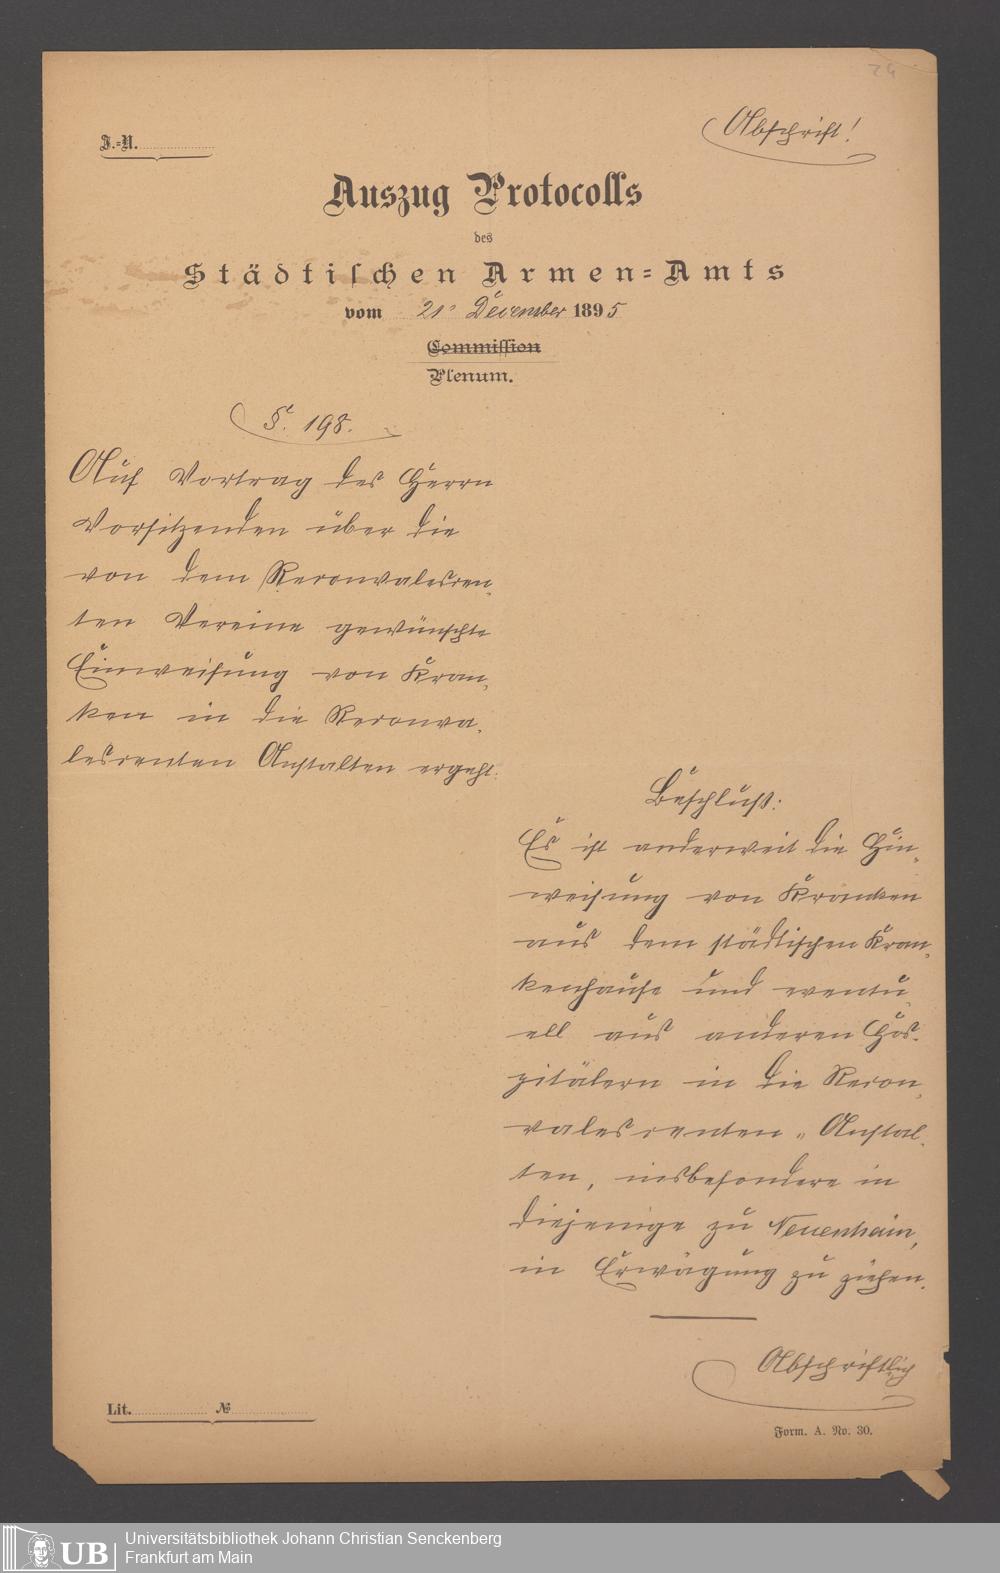 24
Abschrift!
J.-N.
Auszug Protocolls
des
Städtischen Armen-Amts
vom 21t December 1895
Commission
Plenum.
§. 198.
Auf Vortrag des Herrn
Vorsitzenden über die
von dem Reconvalescen-
ten Vereine gewünschte
Einweisung von Kran-
ken in die Reconva-
lescenten Anstalten ergeht:
Beschluß:
Es ist anderweit die Hin-
weisung von Kranken
aus dem städtischen Kran-
kenhause und eventu-
ell aus anderen Hos-
pitälern in die Recon-
valescenten-Anstal-
ten, insbesondere in
diejenige zu Neuenhain,
in Erwägung zu ziehen.
Abschriftlich
Lit. №
Form. A. No. 30.
UB
Universitätsbibliothek Johann Christian Senckenberg
Frankfurt am Main